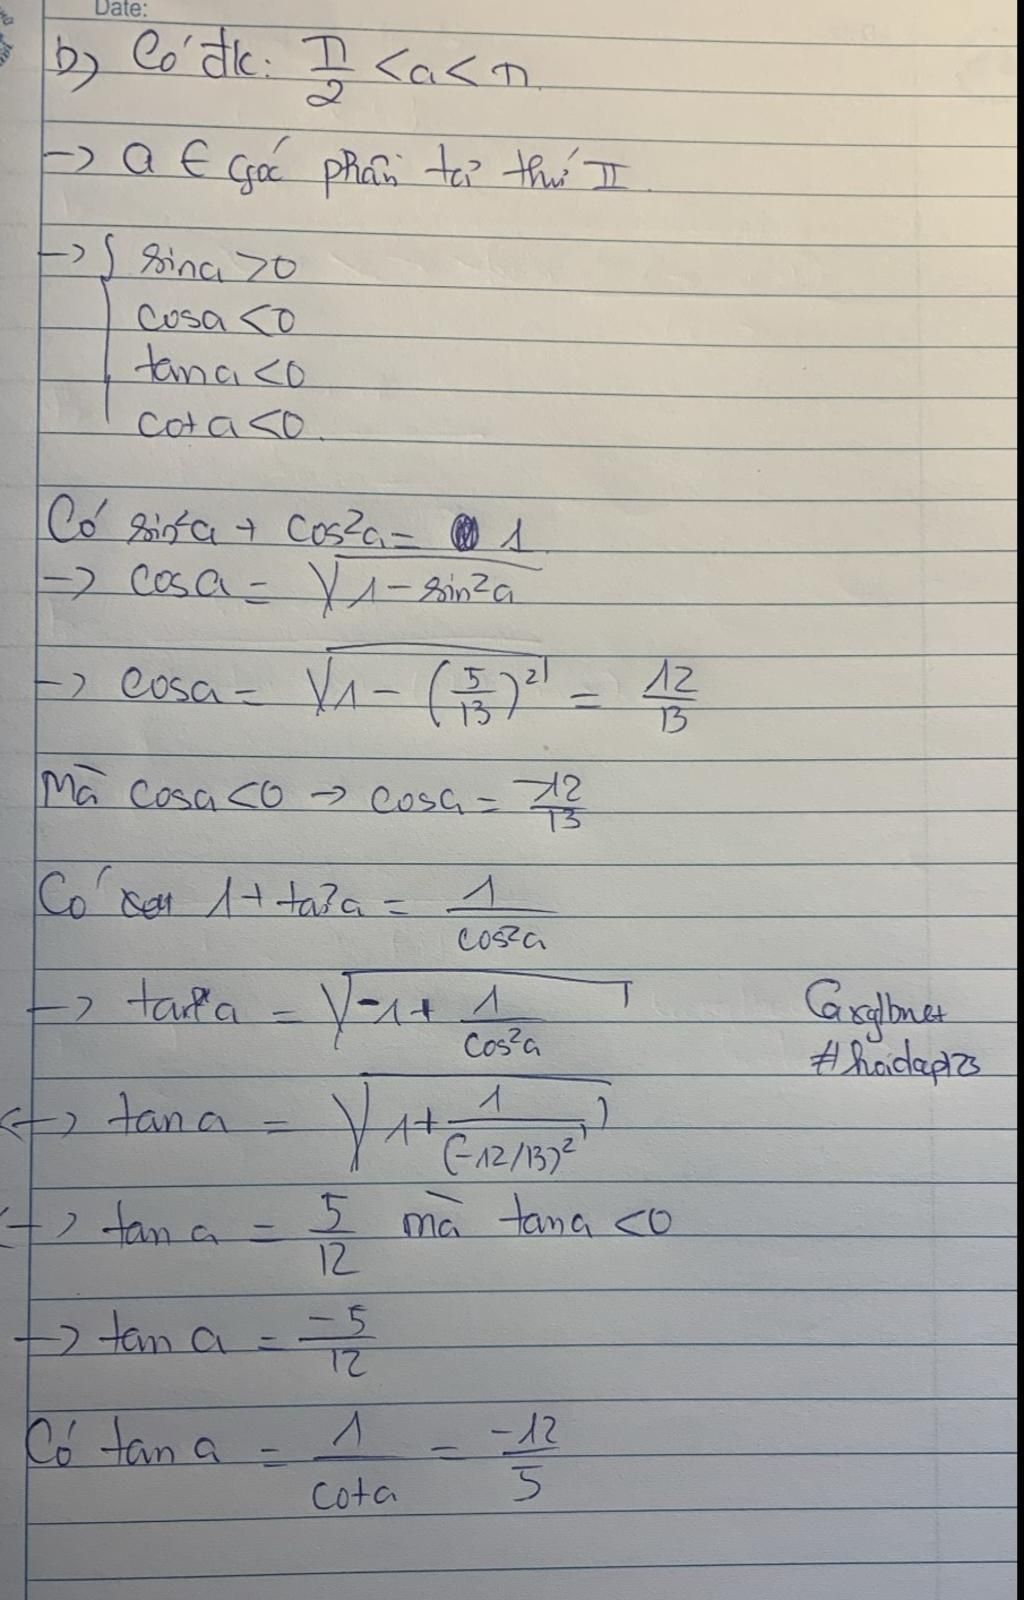 Date:
b) Có đk: π/2 < a < π
-> a ∈ góc phần tư thứ II
-> { sina > 0
cosa < 0
tana < 0
cota < 0
Có sin²a + cos²a = 1
-> cosa = √1 - sin²a
-> cosa = √1 - (5/13)² = 12/13
Mà cosa < 0 -> cosa = -12/13
Có 1 + ta²a = 1/cos²a
-> tan a = √-1 + 1/cos²a
<-> tan a = √1 + 1/(-12/13)²
<-> tan a = 5/12 mà tana < 0
-> tan a = -5/12
Có tan a = 1/cota = -12/5
#hoidap123